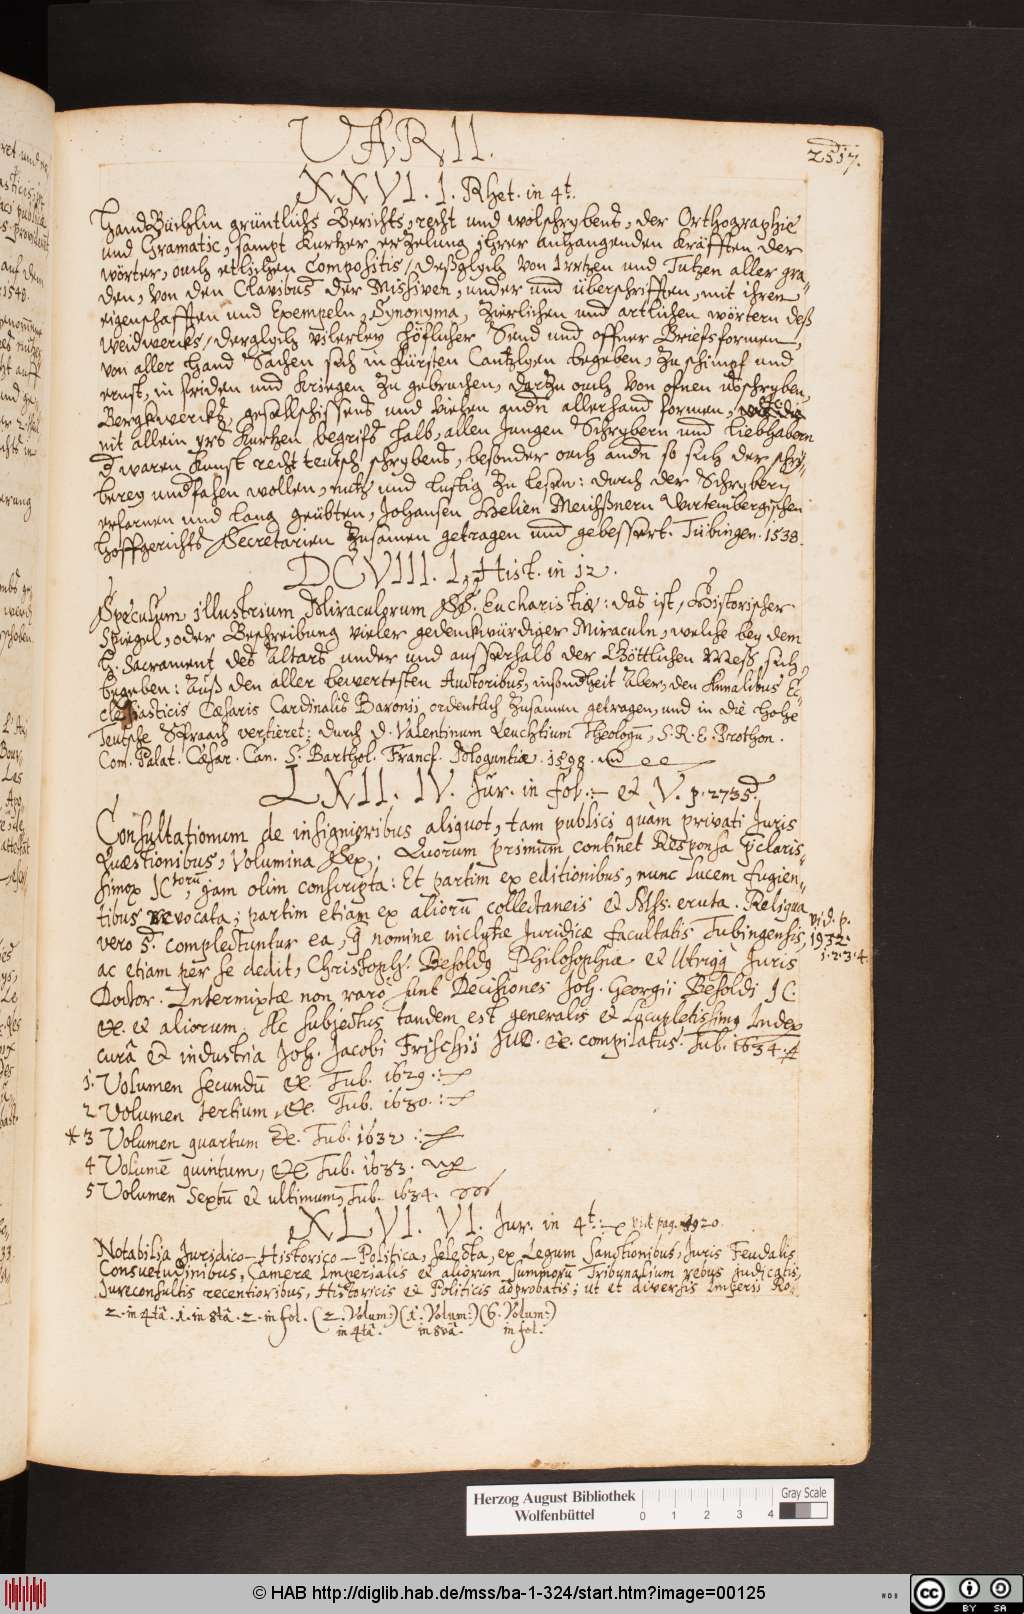 VARII.
2517.
XXVI. 1. Rhet. in 4t.
HandBüchlin grüntlichs Berichts, recht und wolschrybens, der Orthographie
und Gramatic, sampt kurtzer erzelung jhrer anhangenden Kräfften der
wörter, ouch etlichen Compositis / deßglych von Irrtzen und Tutzen aller gra„
den, von den Clavibus der Missiven, under und überschrifften, mit ihren
eigenschafften und Exempeln, Synonyma, zierlichen und artlichen wörtern deß
Weidwercks / derglych vilerley höflicher Send und offner Briefsformen,
von aller Hand Sachen sich in Fürsten Cantzlyen begeben, zu schimpf und
ernst, in friden und Kriegen zu gebruchen, dartzu ouch von
Bergkwercks, und vielen allerhand formen,
nit allein yrs kurtzen begrifs halb, allen Jungen Schrybern und Liebhabern
d waren Kunst recht teutsch schrybens, besonder ouch so sich der schry„
berey undfahen wollen, nutz und lustig zu lesen: durch der Schrybery
erfarnen und lang geübten, Johansen Helien Meichßnern Wirtembergischen
Hoffgerichts Secretarien zusamen getragen und gebessert. Tübingen. 1538.
DCVIII. 1. Hist. in 12.
Speculum, illustrium Miraculorum SS. Eucharistiæ: das ist, Historischer
Spiegel, oder Beschreibung vieler gedenckwürdiger Miraculn, welche bey dem
H. Sacrament des Altars under und ausserhalb der Göttlichen Mess sich
begeben: Auß den aller bewertesten Auctoribus, insondheit Aber, den Annalibus Ec„
clesiasticis Cæsaris Cardinalis Baronij, ordentlich zusamen getragen, und in die Hohe
Teutsche Spraach vertieret: durch D. Valentinum Leuchtium Theologū, S. R. E. Prothon.
Com. Palat. Cæsar. Can. S. Barthol. Francf. Moguntiæ. 1598.
LXII. IV. Jur. in fol. et V. p. 2735.
Consultationum de insignioribus aliquot, tam publici quam privati Juris
Quæstionibus, Volumina Sex. Quorum primum continet Responsa pclaris„
simor JCtorū, jam olim conscripta: Et partim ex editionibus, nunc lucem fugien„
tibus revocata; partim etiam ex aliorū collectaneis et Mss. eruta. Reliqua
vero 5. complectuntur ea, q nomine inclytæ Juridicæ Facultatis Tubingensis,
vid. p.
1932.
1. 2. 3. 4.
ac etiam per se dedit, Christoph. Besold9 Philosophiæ et Utriq Juris
Doctor. Intermixtæ non raro sunt Decisiones Joh. Georgii Besoldi JC.
etc. et aliorum. Hc subjectus tandem est generalis et Locupletissim9 Index
curâ et industria Joh. Jacobi Frischii JUD. etc. compilatus. Tub. 1634.
1. Volumen secundū etc. Tub. 1629.
2 Volumen tertium, etc. Tub. 1630.
* 3 Volumen quartum etc. Tub. 1632
4 Volumē quintum, etc Tub. 1633.
5 Volumen Sextū et ultimum, Tub. 1634.
XLVI. VI. Jur. in 4t. vid. pag. 1920.
Notabilia Juridico-Historico-Politica, selecta, ex Legum Sanctionibus, Juris Feudalis
Consuetudinibus, Cameræ Imperialis et aliorum summorū Tribunalium rebus judicatis,
Jureconsultis recentioribus, Historicis et Politicis adprobatis; ut et diversis Imperii Ro„
2. in 4tâ. 1. in 8tâ. 2. in fol. (2. Volum:) (1. Volum:) (6. Volum:)
in 4tâ. in 8vâ. in fol.
Herzog August Bibliothek
Wolfenbüttel
0 1 2 3 4
Gray Scale
© HAB http://diglib.hab.de/mss/ba-1-324/start.htm?image=00125
cc BY SA